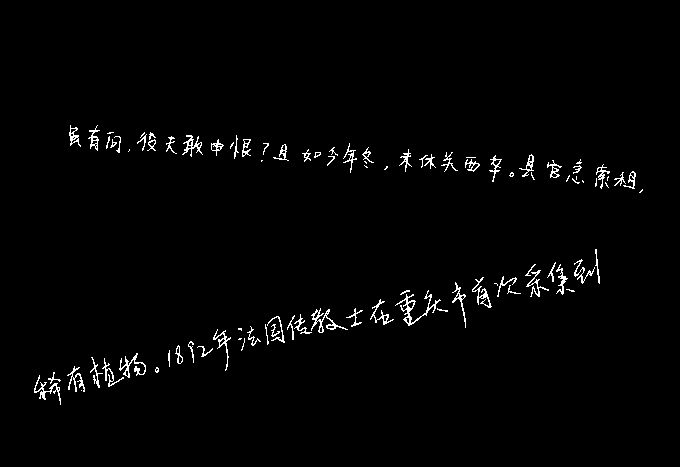 虽有问，役夫敢申恨？且如今年冬，未休关西卒。县官急索租，
稀有植物。1892年法国传教士在重庆市首次采集到